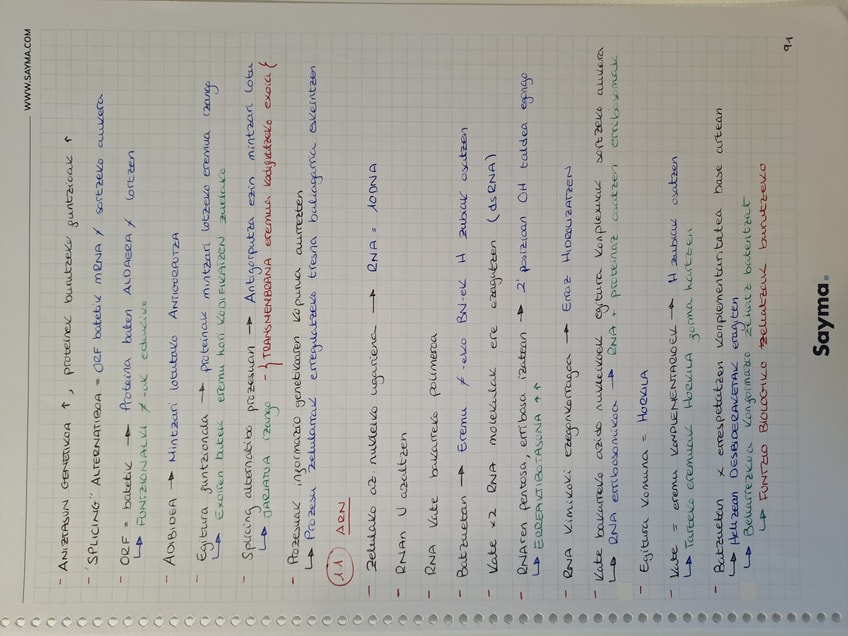 WWW.SAYMA.COM
- ANIZTASUN GENETIKOA ↑, proteinek burutzeko funtzioak ↑
- "SPLICING" ALTERNATIBOA = ORF batetik mRNA ≠ sortzeko aukera
- ORF = batetik → Proteina baten ALDAERA ≠ lortzen
↳ FUNTZIONALKI ≠-ak edukiko
- ADIBIDEA → Mintzari lotutako ANTIGORPUTZA
- Egitura funtzionala → proteinak mintzari lotzeko eremua izango
↳ Exoiren batek eremu hori KODIFIKATZEN duelako
- Splicing alternatibo prozesuan → Antigorputza ezin mintzari lotu
↳ JARIATUA izango - { TRANSMENBRANA eremua kodifikatzeko exoia {
- Prozesuak informazio genetikoaren kopurua aurrezten
↳ Prozesu zelularrak erregulatzeko tresna baliagarria eskeintzen
11. ARN
- Zelulako az. nukleiko ugariena → RNA = 10DNA
- RNAn U azaltzen
- RNA kate bakarreko polimeroa
- Batzuetan → Eremu ≠-eko BN-ek H zubiak osatzen
- Kate x2 RNA molekulak ere ezagutzen (dsRNA)
- RNAren pentosa, erribosa izatean → 2' posizioan OH taldea egongo
↳ ERREAKTIBOTASUNA ↑↑
- RNA kimikoki ezegonkorragoa → Erraz HIDROLIZATZEN
- Kate bakarreko azido nukleikoek egitura konplexuak sortzeko aukera
↳ RNA erribosomikoa → RNA + proteinaz osatzen erribosomak
- Egitura komuna = HORKILA
- Kate = eremu KONPLEMENTARIOEK → H zubiak osatzen
↳ Tarteko eremuak HORKILA forma hartzen
- Batzuetan x errespetatzen konplementaritatea base artean
↳ Helizean DESBIDERAKETAK eragiten
↳ Beharrezkoa konformazio zehatz batentzat
↳ FUNTZIO BIOLOGIKO ZEHATZAK burutzeko
Sayma.
91